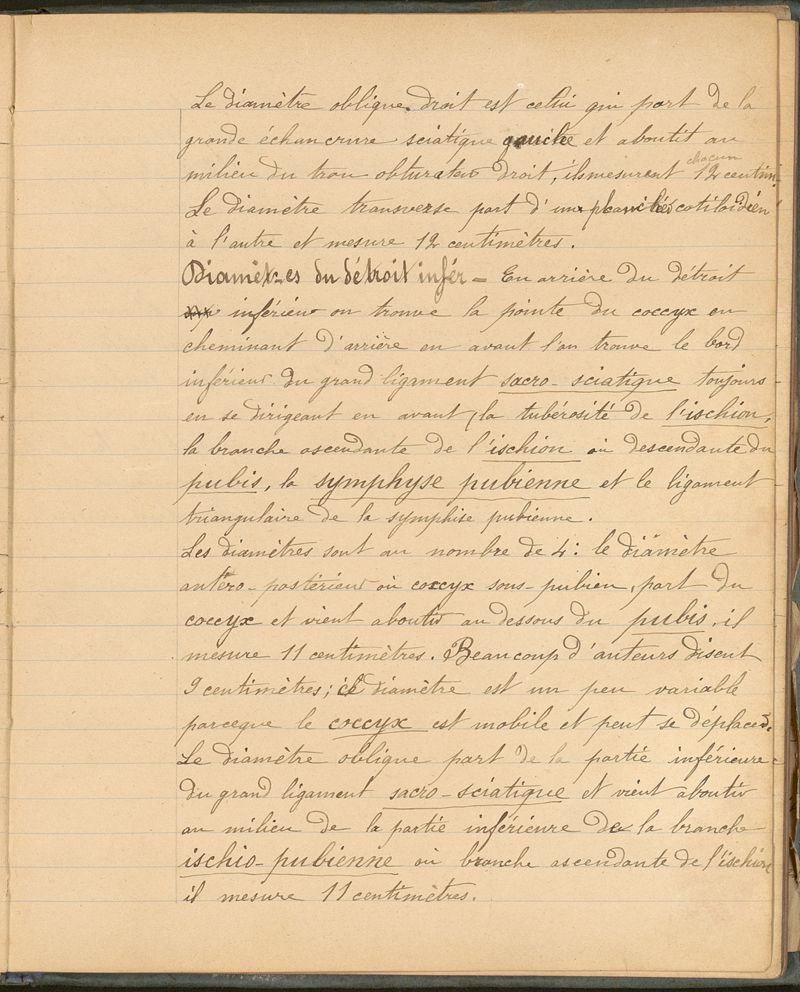 Le diamètre oblique droit est celui qui part de la
grande échancrure sciatique gauche et aboutit au
milieu du trou obturateur droit, ils mesurent chacun 12 centim.
Le diamètre transverse part d'un cotiloïdien
à l'autre et mesure 12 centimètres.
Diamètres du détroit infér = En arrière du détroit
inférieur on trouve la pointe du coccyx en
cheminant d'arrière en avant l'on trouve le bord
inférieur du grand ligament sacro-sciatique toujours
en se dirigeant en avant, la tubérosité de l'ischion,
la branche ascendante de l'ischion ou descendante du
pubis, la symphyse pubienne et le ligament
triangulaire de la symphise pubienne.
Les diamètres sont au nombre de 4: le diamètre
antéro-postérieur ou coccyx sous-pubien, part du
coccyx et vient aboutir au dessous du pubis, il
mesure 11 centimètres. Beaucoup d'auteurs disent
9 centimètres; ce diamètre est un peu variable
parceque le coccyx est mobile et peut se déplacer.
Le diamètre oblique part de la partie inférieure
du grand ligament sacro-sciatique et vient aboutir
au milieu de la partie inférieure de la branche
ischio-pubienne ou branche ascendante de l'ischion
il mesure 11 centimètres.